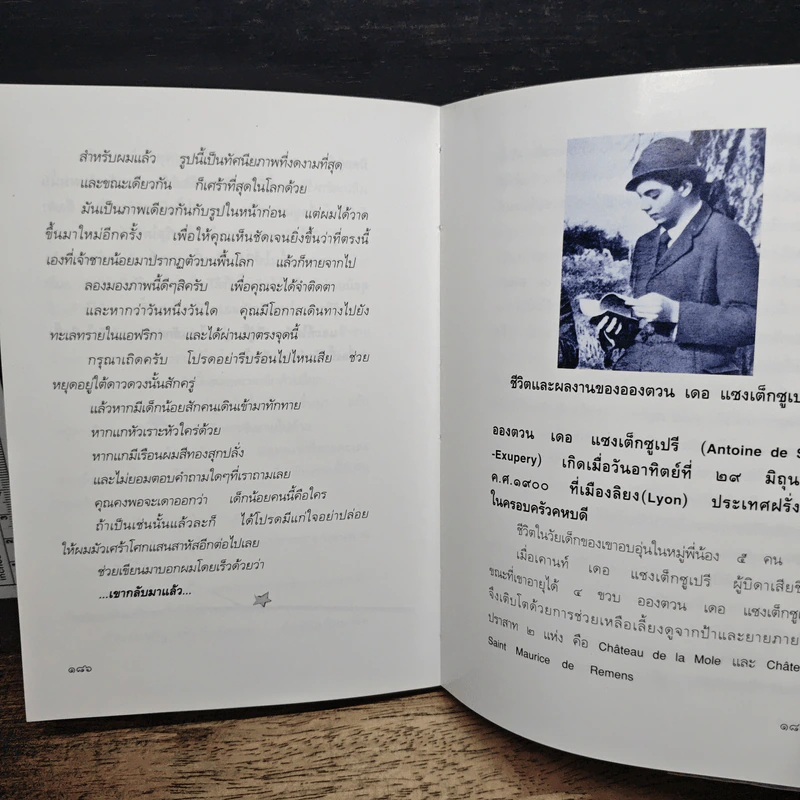 สำหรับผมแล้ว รูปนี้เป็นทัศนียภาพที่งดงามที่สุด
และขณะเดียวกัน ก็เศร้าที่สุดในโลกด้วย
มันเป็นภาพเดียวกันกับรูปในหน้าก่อน แต่ผมได้วาด
ขึ้นมาใหม่อีกครั้ง เพื่อให้คุณเห็นชัดเจนยิ่งขึ้นว่าที่ตรงนี้
เองที่เจ้าชายน้อยมาปรากฏตัวบนพื้นโลก แล้วก็หายจากไป
ลองมองภาพนี้ดีๆสิครับ เพื่อคุณจะได้จำติดตา
และหากว่าวันหนึ่งวันใด คุณมีโอกาสเดินทางไปยัง
ทะเลทรายในแอฟริกา และได้ผ่านมาตรงจุดนี้
กรุณาเถิดครับ โปรดอย่ารีบร้อนไปไหนเสีย ช่วย
หยุดอยู่ใต้ดาวดวงนั้นสักครู่
แล้วหากมีเด็กน้อยสักคนเดินเข้ามาทักทาย
หากแกหัวเราะหัวใคร่ด้วย
หากแกมีเรือนผมสีทองสุกปลั่ง
และไม่ยอมตอบคำถามใดๆที่เราถามเลย
คุณคงพอจะเดาออกว่า เด็กน้อยคนนี้คือใคร
ถ้าเป็นเช่นนั้นแล้วละก็ ได้โปรดมีแก่ใจอย่าปล่อย
ให้ผมมัวเศร้าโศกแสนสาหัสอีกต่อไปเลย
ช่วยเขียนมาบอกผมโดยเร็วด้วยว่า
...เขากลับมาแล้ว...
๑๘๖
ชีวิตและผลงานของอองตวน เดอ แซงเต็กซูเป
อองตวน เดอ แซงเต็กซูเปรี (Antoine de S
-Exupery) เกิดเมื่อวันอาทิตย์ที่ ๒๙ มิถุน
ค.ศ.๑๙๐๐ ที่เมืองลิยง(Lyon) ประเทศฝรั่ง
ในครอบครัวคหบดี
ชีวิตในวัยเด็กของเขาอบอุ่นในหมู่พี่น้อง ๕ คน
เมื่อเคานท์ เดอ แซงเต็กซูเปรี ผู้บิดาเสียชี
ขณะที่เขาอายุได้ ๔ ขวบ อองตวน เดอ แซงเต็กซูเ
จึงเติบโตด้วยการช่วยเหลือเลี้ยงดูจากป้าและยายภาย
ปราสาท ๒ แห่ง คือ Château de la Mole และ Châte
Saint Maurice de Remens
๑๘